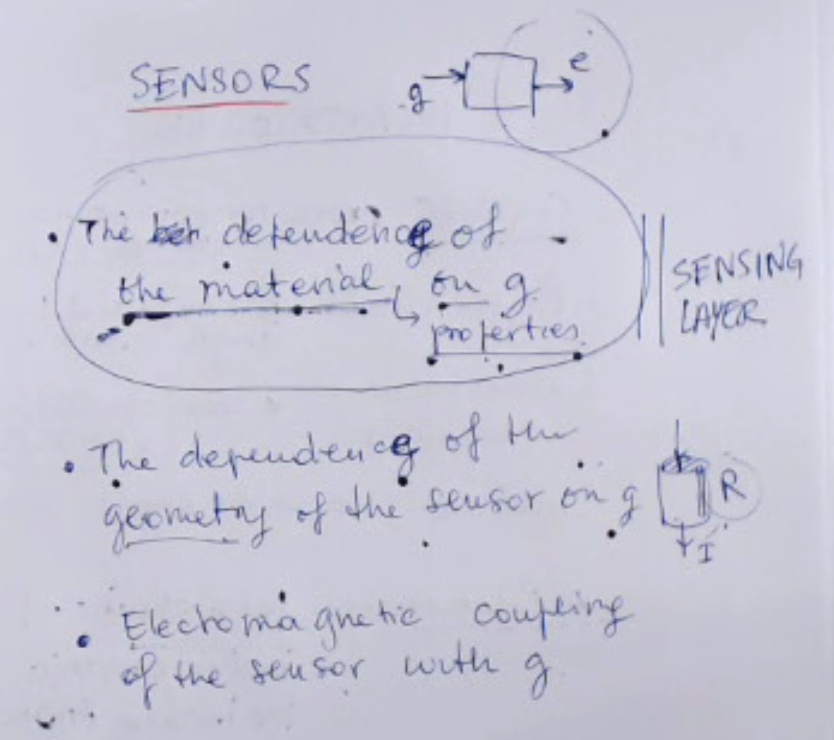 SENSORS
g
e
• The dependence of
the material, on g
properties
SENSING
LAYER
• The dependence of the
geometry of the sensor on g
R
I
• Electromagnetic coupling
of the sensor with g